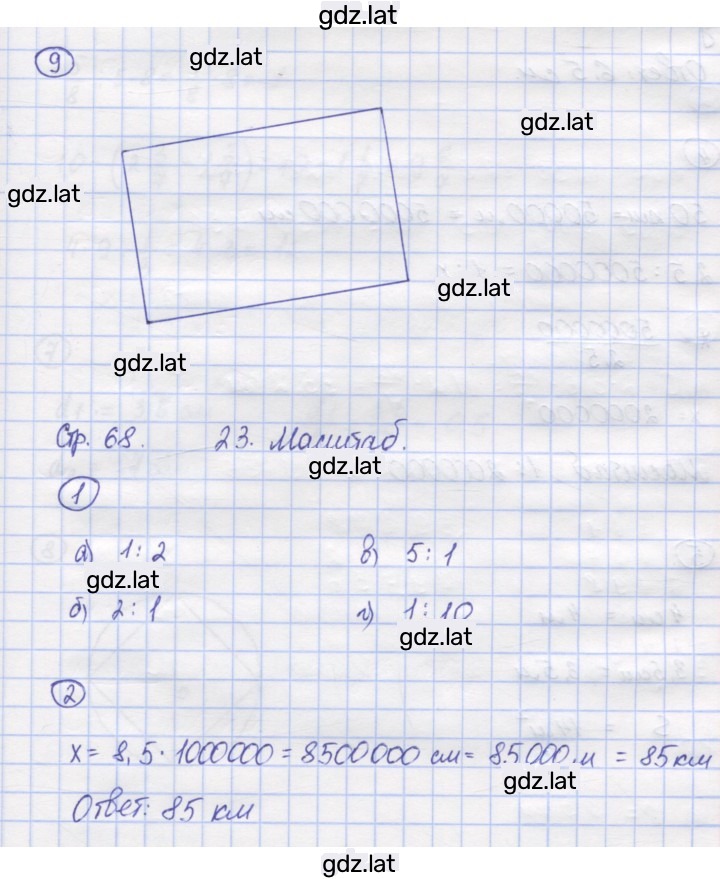 gdz.lat
9 gdz.lat
gdz.lat
gdz.lat
gdz.lat
gdz.lat
Стр. 68. 23. Масштаб.
gdz.lat
1
а) 1:2 в) 5:1
gdz.lat
б) 2:1 г) 1:10
gdz.lat
2
x = 8,5 · 1000000 = 8500000 см = 85000 м = 85 км
gdz.lat
Ответ: 85 км
gdz.lat